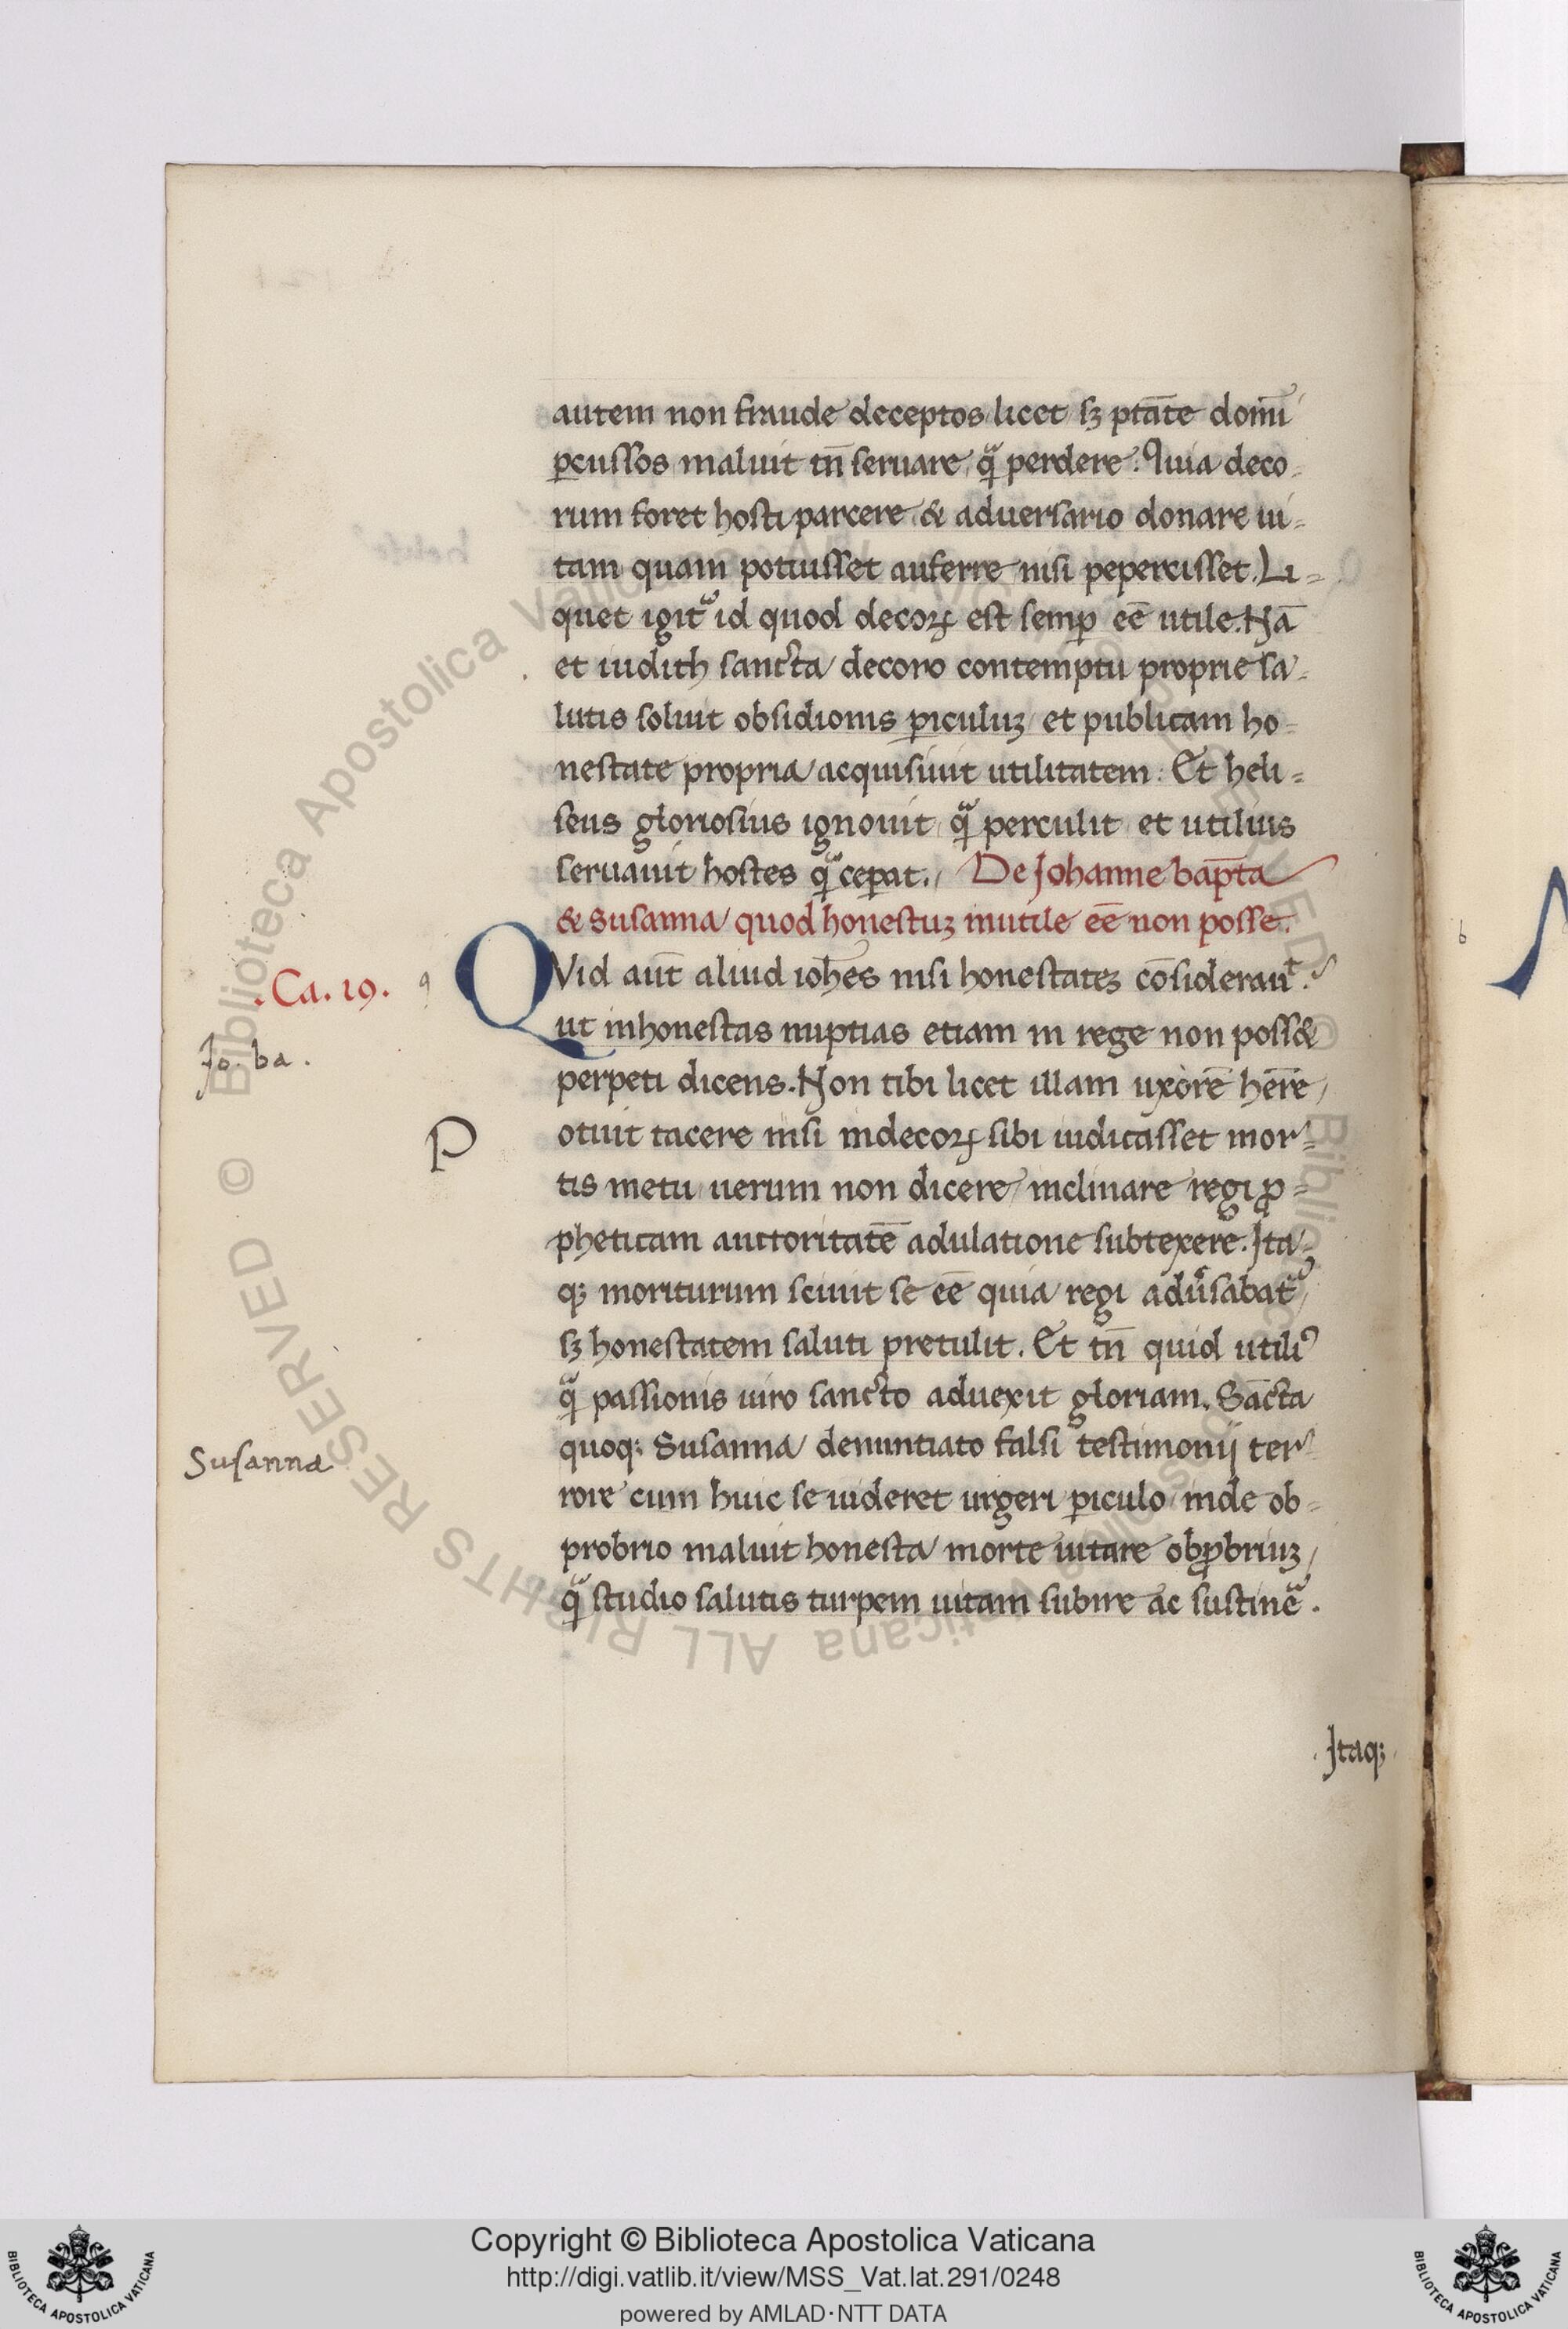 autem non fraude deceptos licet sꝫ ptāte domī
ꝑcussos maluit tn̄ seruare qᷓ perdere. Quia deco-
rum foret hosti parcere & aduersario donare ui-
tam quam potuisset auferre nisi pepercisset. Li-
quet igitᷓ id quod decoꝝ est semꝑ eē utile. Nā
et iudith sancta decoro contemptu proprie sa-
lutis soluit obsidionis ꝑiculuꝫ et publicam ho-
nestate propria acquisiuit utilitatem. Et heli-
seus gloriosius ignouit qᷓ perculit et utilius
seruauit hostes qᷓ ceꝑat. De Johanne bap̄ta
& Susanna quod honestuꝫ inutile eē non posse.
.Ca. 19.
QVid aūt aliud ioh̄es nisi honestateꝫ cōsiderauᵗ.
Jo. ba.
ut inhonestas nuptias etiam in rege non poss&
perpeti dicens. Non tibi licet illam uxorē hēre
P
otuit tacere nisi indecoꝝ sibi iudicasset mor-
tis metu uerum non dicere inclinare regi ꝓ-
pheticam auctoritatē adulatione subtexere. Ita-
qꝫ moriturum sciuit se eē quia regi adu͛sabatᷓ
sꝫ honestatem saluti pretulit. Et tn̄ quid utiliꝰ
qᷓ passionis uiro sancto aduexit gloriam. Sācta
Susanna
quoqꝫ Susanna denuntiato falsi testimonij ter-
rore cum huic se uideret urgeri ꝑiculo inde ob-
probrio maluit honesta morte uitare obꝓbriuꝫ
qᷓ studio salutis turpem uitam subire ac sustinēᷓ.
Itaqꝫ
b
Copyright © Biblioteca Apostolica Vaticana
http://digi.vatlib.it/view/MSS_Vat.lat.291/0248
powered by AMLAD·NTT DATA
BIBLIOTECA APOSTOLICA VATICANA
BIBLIOTECA APOSTOLICA VATICANA